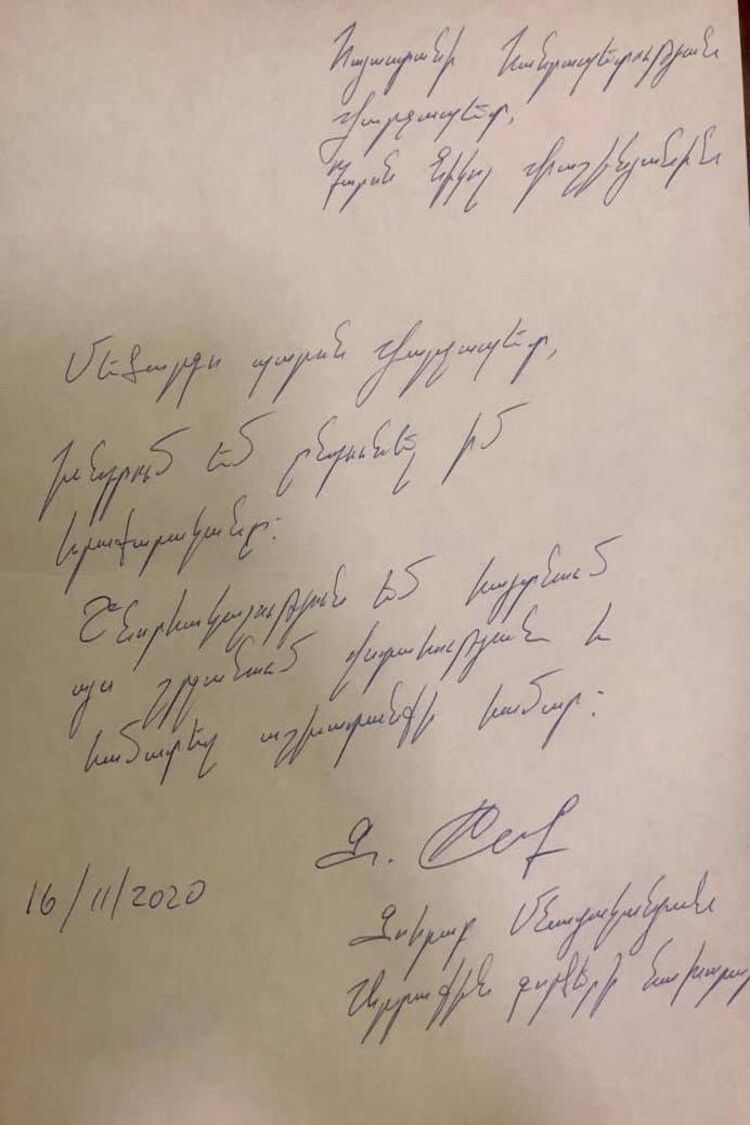 Հայաստանի Հանրապետության
Վարչապետ,
Պարոն Նիկոլ Փաշինյանին
Մեծարգո պարոն Վարչապետ,
Խնդրում եմ ընդունել իմ
հրաժարականը:
Շնորհակալություն եմ հայտնում
այս շրջանում վստահության և
համատեղ աշխատանքի համար:
Զ.
16/11/2020
Զոհրաբ Մնացականյան
Արտաքին գործերի նախարար